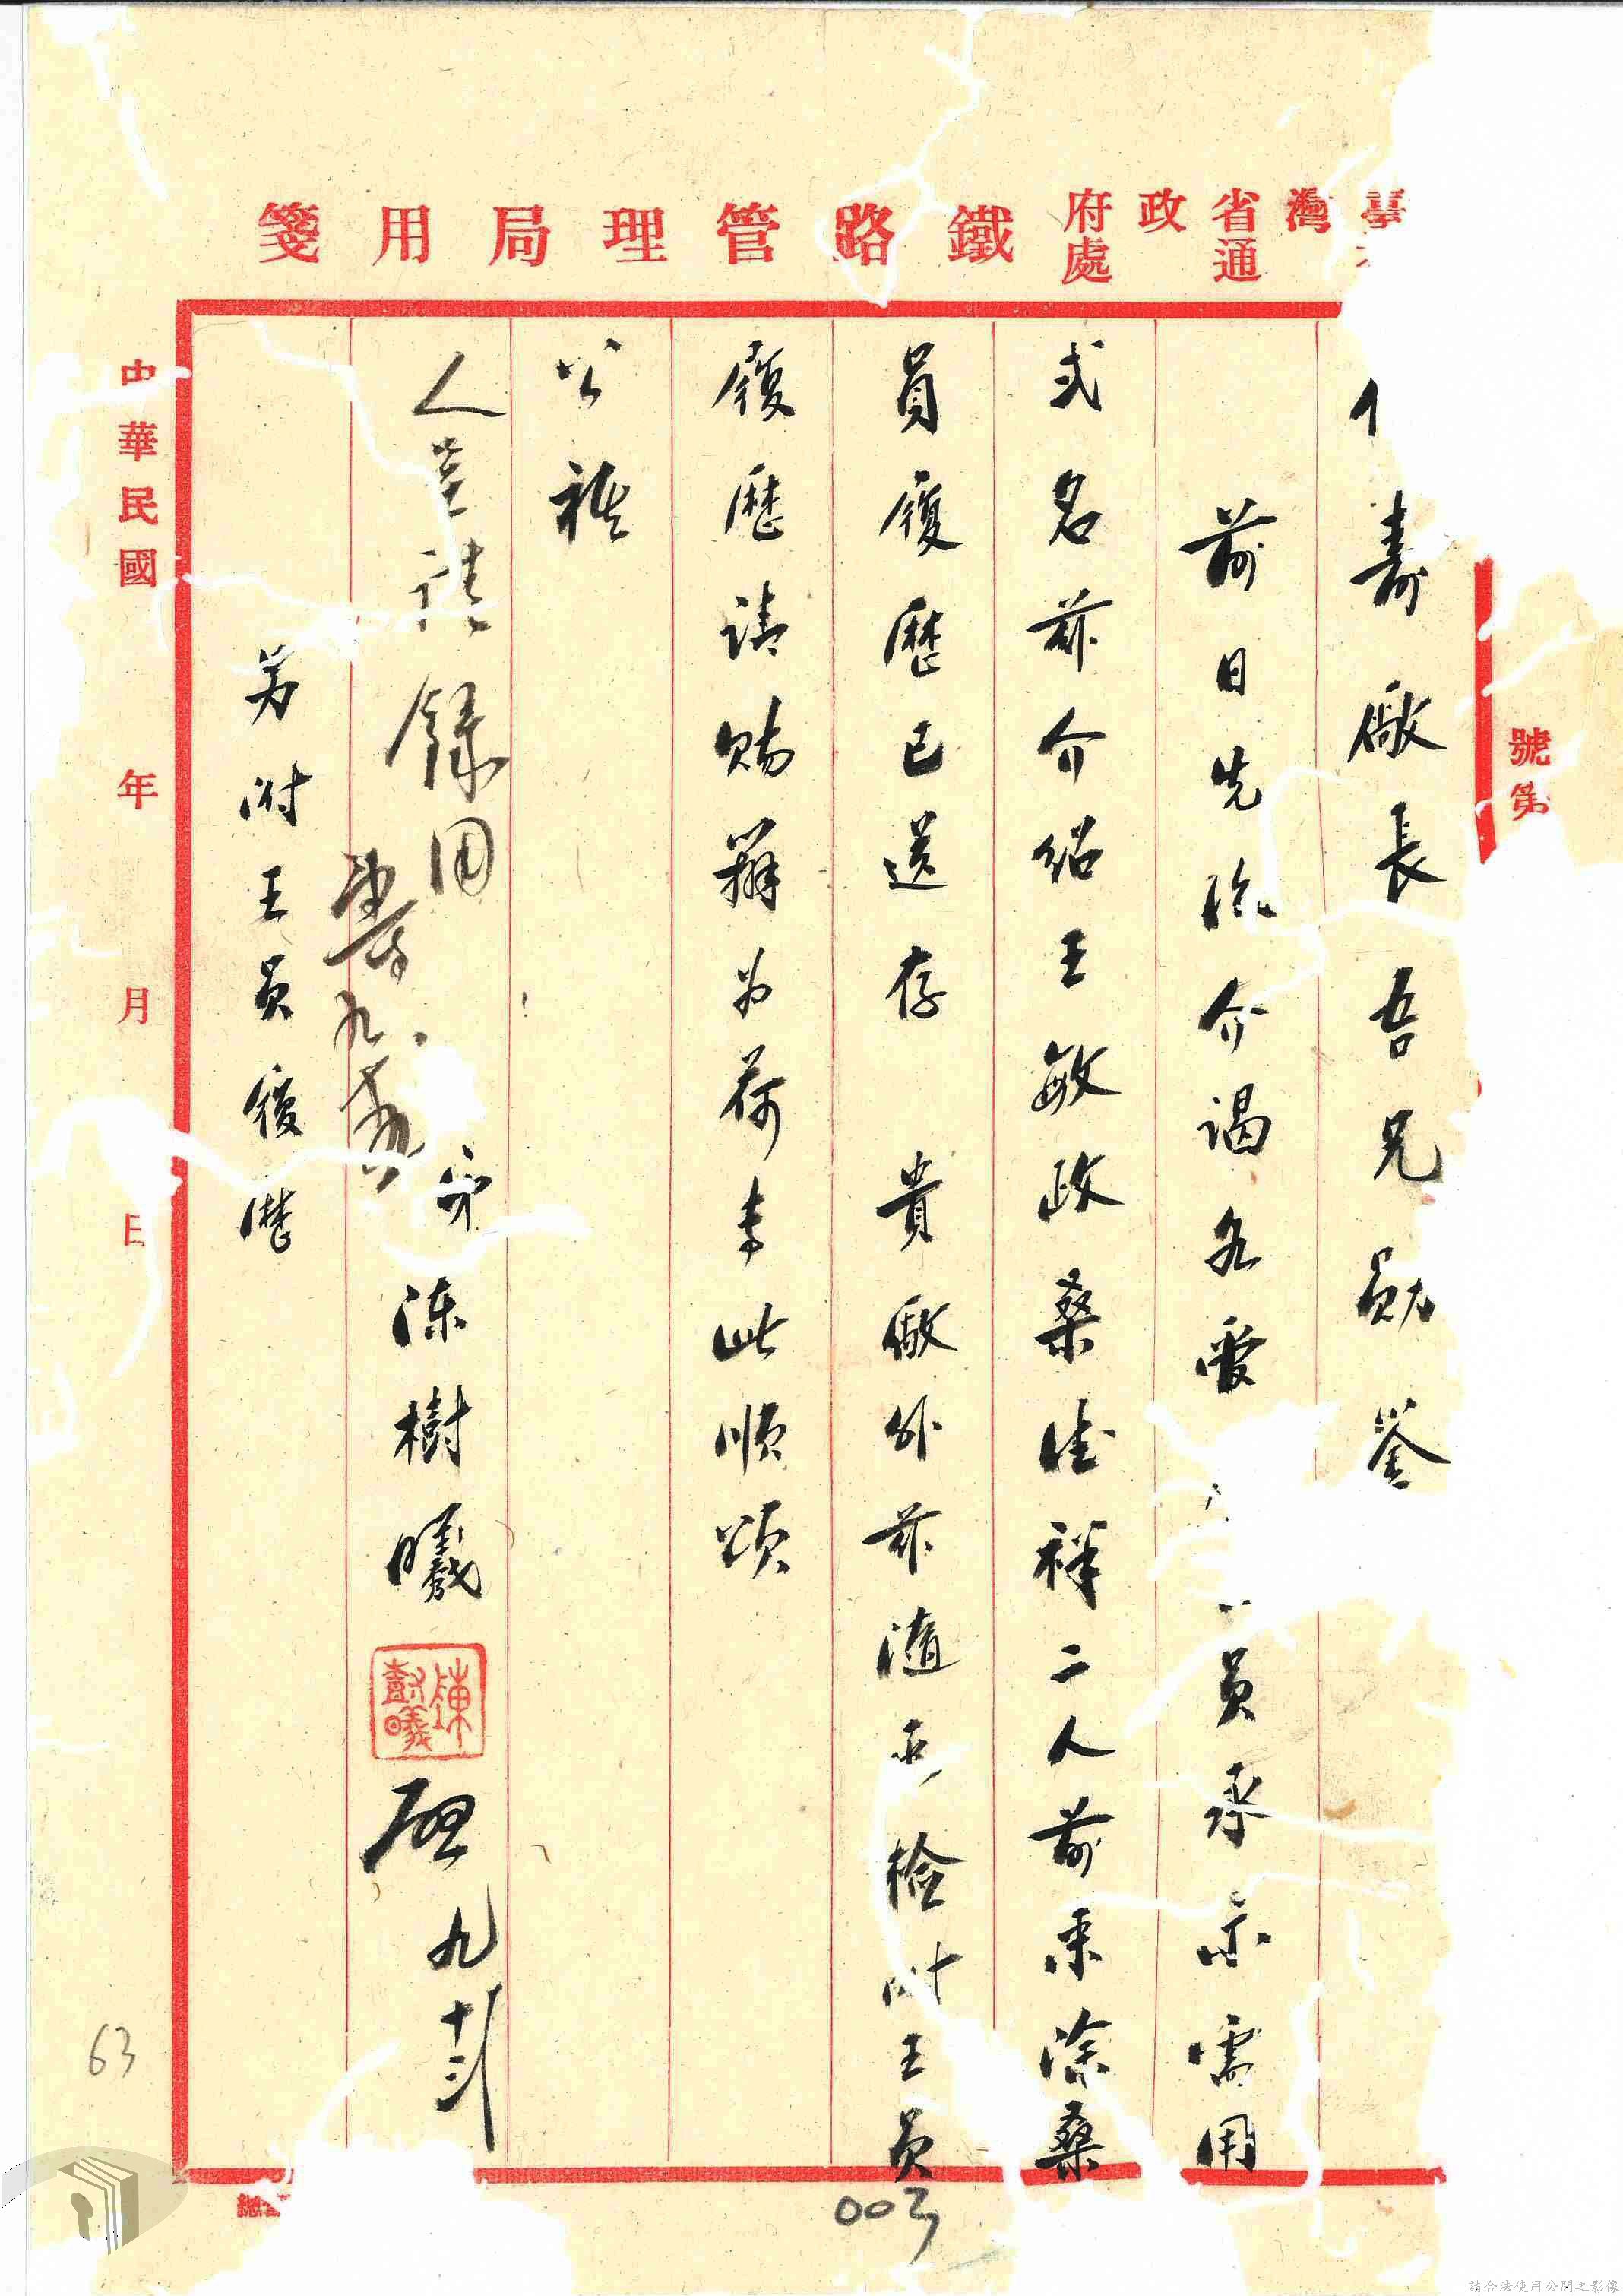 灣省政府
通處
鐵路管理局用箋
號第
壽廠長吾兄勛鑒
前日先後介謁各
員承示需用
弍名茲介紹王敏政桑德祥二人前來除桑
員履歷已送存 貴廠外茲隨函檢附王員
履歷請賜辦為荷專此順頌
公祺
弟陳樹曦
陳樹曦
啟 九 十三
另附王員履歷
人並請錄用
中華民國 年 月 日
63
003
請合法使用公開之影像